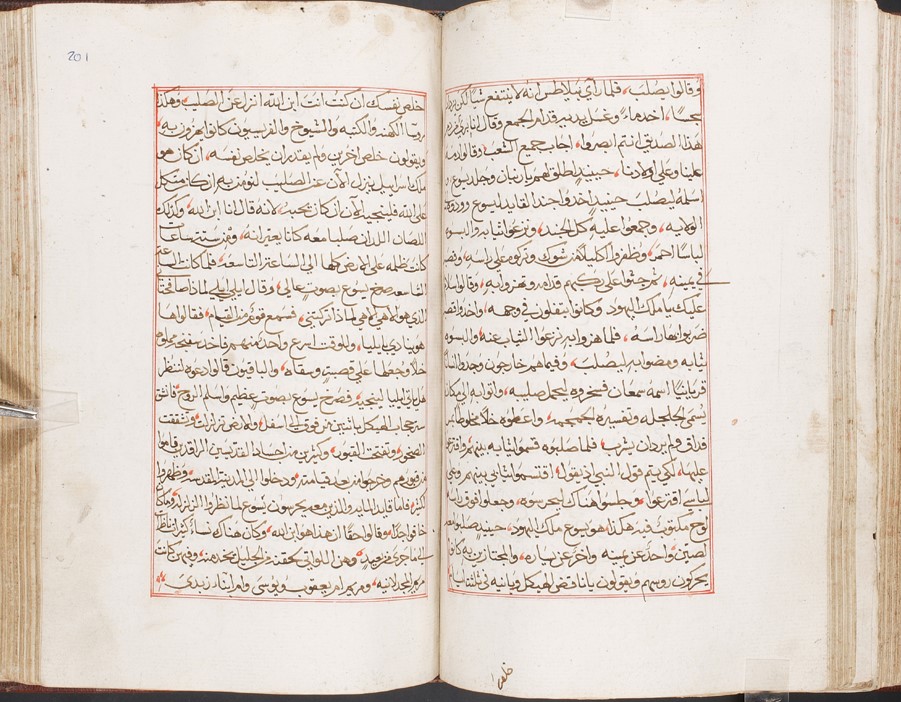 وقالوا يصلب، فلما رآي بيلاطس انه لا ينتفع شيا لكن يزداد
سجسا، اخد ماءً وغسل يديه قدام الجمع وقال انا بري من دم
هدا الصديق انتم ابصروا، اجاب جميع الشعب وقالوا دمه
علينا وعلي اولادنا، حينيد اطلق لهم باربان وجلد يسوع و
اسلمه ليصلب حينيد اخدوا جند القايد ليسوع ودوروه
الولايه، وجمعوا عليه كل الجند، ونزعوا ثيابه والبسوه
لباسًا احمر، وظفروا اكليلاً من شوك وتركوه علي راسه، وقصبه
في يمينه، ثم جثوا علي ركبهم قدامه وتهزوا به، وقالوا سلام
عليك يا ملك اليهود، وكانوا يتفلون في وجهه، واخدوا قصبه
ضربوا بها راسه، فلما هزوا به نزعوا الثياب عنه والبسوه
ثيابه ومضوا به ليصلب، وفيما هم خارجون وجدوا انسانا
قريانيًا اسمه سمعان فسخروه ليحمل صليبه، واتوا به الي مكان
يسمي الجلجله وتفسيره الجمجمه، واعطوه خلاً مخلوطا بمر
فداق ولم يرد ان يشرب، فلما صلبوه قسموا ثيابه بينهم واقترعوا
عليها، لكي يتم قول النبي اذ يقول، اقتسموا ثيابي بينهم وعلي
لباسي اقترعوا، وجلسوا هناك ليحرسوه، وجعلوا فوق راسه
لوح مكتوب فيه هكذا هو يسوع ملك اليهود، حينيد صلبوا معه
لصين، واحد عن يمينه واخر عن يساره، والمجتازين به كانوا
يحركون روسهم ويقولون يا ناقض الهيكل وبانيه في ثلثة ايام
خلص
201
خلص نفسك ان كنت انت ابن الله انزل عن الصليب وهكذا
روسا الكهنه والكتبه والشيوخ والفريسيون كانوا يهزون به،
ويقولون خلص اخرين ولم يقدر ان يخلص نفسه، ان كان هو
ملك اسراييل ينزل الآن عن الصليب لنومن به، ان كان متكل
علي الله فلينجيه الآن ان كان يحبه، لانه قال انا ابن الله، وكذلك
اللصان اللذان صلبا معه كانا يعيرانه، ومن ست ساعات
كانت ظلمه علي الارض كلها الي الساعه التاسعه، فلما كانت الساعه
التاسعه صرخ يسوع بصوتٍ عالي، وقال ايلي ايلي لماذا صافختا
الذي هو الاهي الاهي لماذا تركتني، فسمع قوم من القيام، فقالوا هذا
هو ينادي بايليا، وللوقت اسرع واحد منهم فاخد سفنجه مملوه
خلاً وجعلها علي قصبه، وسقاه، والباقيون قالوا دعوه لننظر
هل ياتي ايليا لينجيه، فصرخ يسوع بصوتٍ عظيم واسلم الروح، فانشق
ستر حجاب الهيكل باثنين من فوق الي اسفل، والارض تزلزلت، وتشققت
الصخور، وتفتحت القبور، وكثير من اجساد القديسين الراقدين قاموا
من قبورهم وخرجوا من بعد قيامته، ودخلوا الي المدينه المقدسه، وظهروا
لكثير، فاما قايد المايه والذين معه يحرسون يسوع لما نظروا الزلزله وما كان
خافوا جدًا وقالوا حقا ان هذا هو ابن الله، وكان هناك نساءً كثيرًا ناظرات
لما جري من بعيد، وهن اللواتي لحقنه من الجليل يخدمنه، وفيهن كانت
مريم المجدلانيه، ومريم ام يعقوب ويوسي وام ابنا زبدي